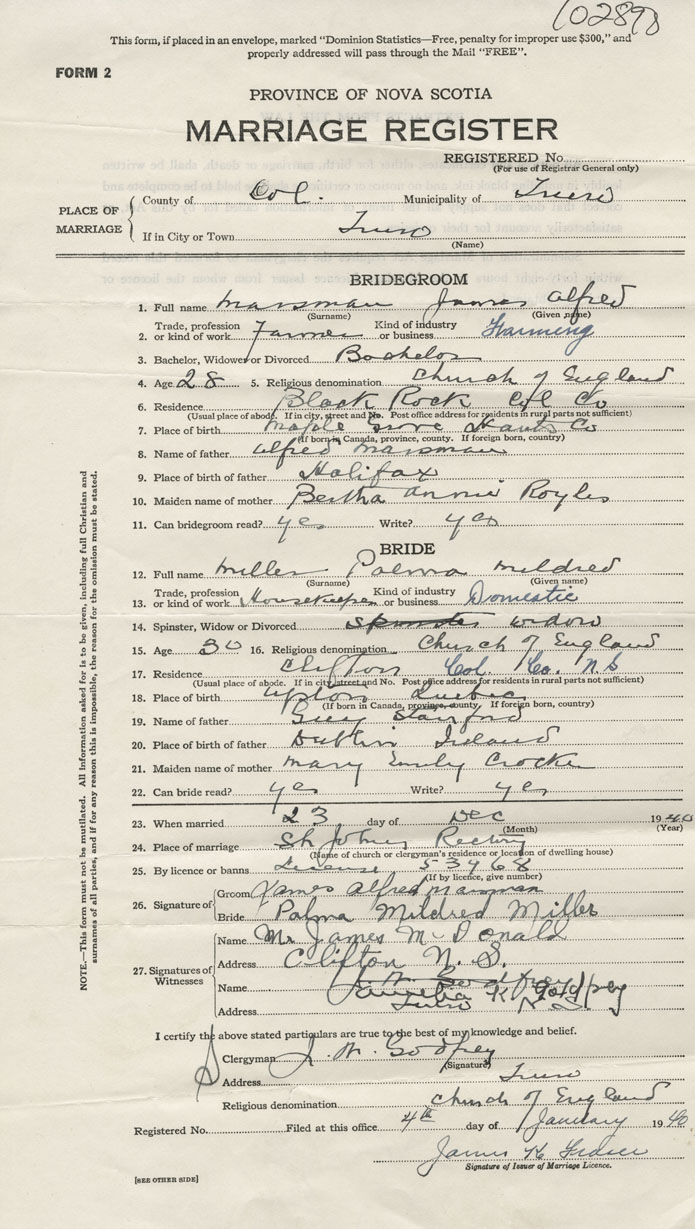 102898
This form, if placed in an envelope, marked "Dominion Statistics—Free, penalty for improper use $300," and
properly addressed will pass through the Mail "FREE".
FORM 2
PROVINCE OF NOVA SCOTIA
MARRIAGE REGISTER
REGISTERED No.
(For use of Registrar General only)
PLACE OF MARRIAGE
County of Col. Municipality of Truro
If in City or Town Truro
(Name)
BRIDEGROOM
1. Full name Marsman James Alfred
(Surname) (Given name)
2. Trade, profession or kind of work Farmer Kind of industry or business Farming
3. Bachelor, Widower or Divorced Bachelor
4. Age 28 5. Religious denomination Church of England
6. Residence Black Rock Col Co
(Usual place of abode. If in city, street and No. Post office address for residents in rural parts not sufficient)
7. Place of birth Maple Grove Hants Co
(If born in Canada, province, county. If foreign born, country)
8. Name of father Alfred Marsman
9. Place of birth of father Halifax
10. Maiden name of mother Bertha Annie Royles
11. Can bridegroom read? yes Write? yes
BRIDE
12. Full name Miller Palma Mildred
(Surname) (Given name)
13. Trade, profession or kind of work Housekeeper Kind of industry or business Domestic
14. Spinster, Widow or Divorced Spinster widow
15. Age 30 16. Religious denomination Church of England
17. Residence Clifton Col. Co. N.S
(Usual place of abode. If in city street and No. Post office address for residents in rural parts not sufficient)
18. Place of birth Upton Quebec
(If born in Canada, province, county. If foreign born, country)
19. Name of father Guy Stanford
20. Place of birth of father Dublin Ireland
21. Maiden name of mother Mary Emily Crocker
22. Can bride read? yes Write? yes
23. When married 23 day of Dec 1940
(Month) (Year)
24. Place of marriage St Johns Rectory
(Name of church or clergyman's residence or location of dwelling house)
25. By licence or banns License 53968
(If by licence, give number)
26. Signature of
Groom James Alfred Marsman
Bride Palma Mildred Miller
27. Signatures of Witnesses
Name Mr James McDonald
Address Clifton N. S.
Name K Godfrey
Address Truro N.S.
I certify the above stated particulars are true to the best of my knowledge and belief.
Clergyman J. W. Godfrey
(Signature)
Address Truro
Religious denomination Church of England
Registered No. Filed at this office 4th day of January 1940
James K
Signature of Issuer of Marriage Licence.
[SEE OTHER SIDE]
NOTE.—This form must not be mutilated. All information asked for is to be given, including full Christian and
surnames of all parties, and if for any reason this is impossible, the reason for the omission must be stated.